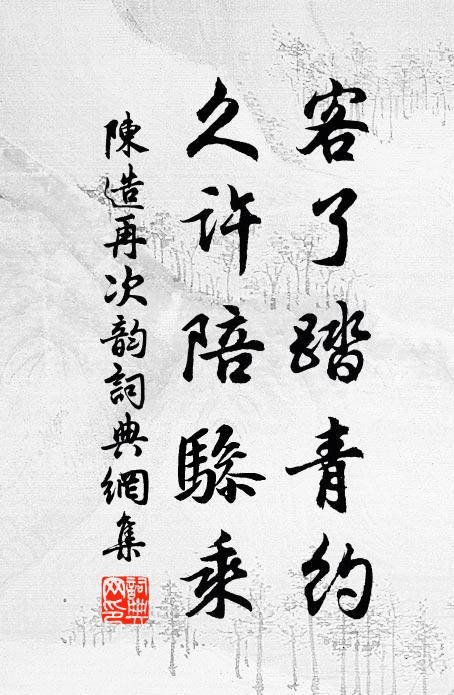 客了踏青約
久許陪驂乘
陳造再次韵詞典網集
詞典網印